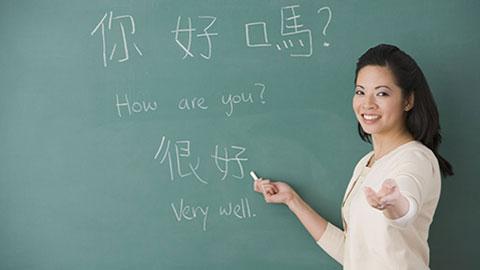 你好嗎?
How are you?
很好
Very well.